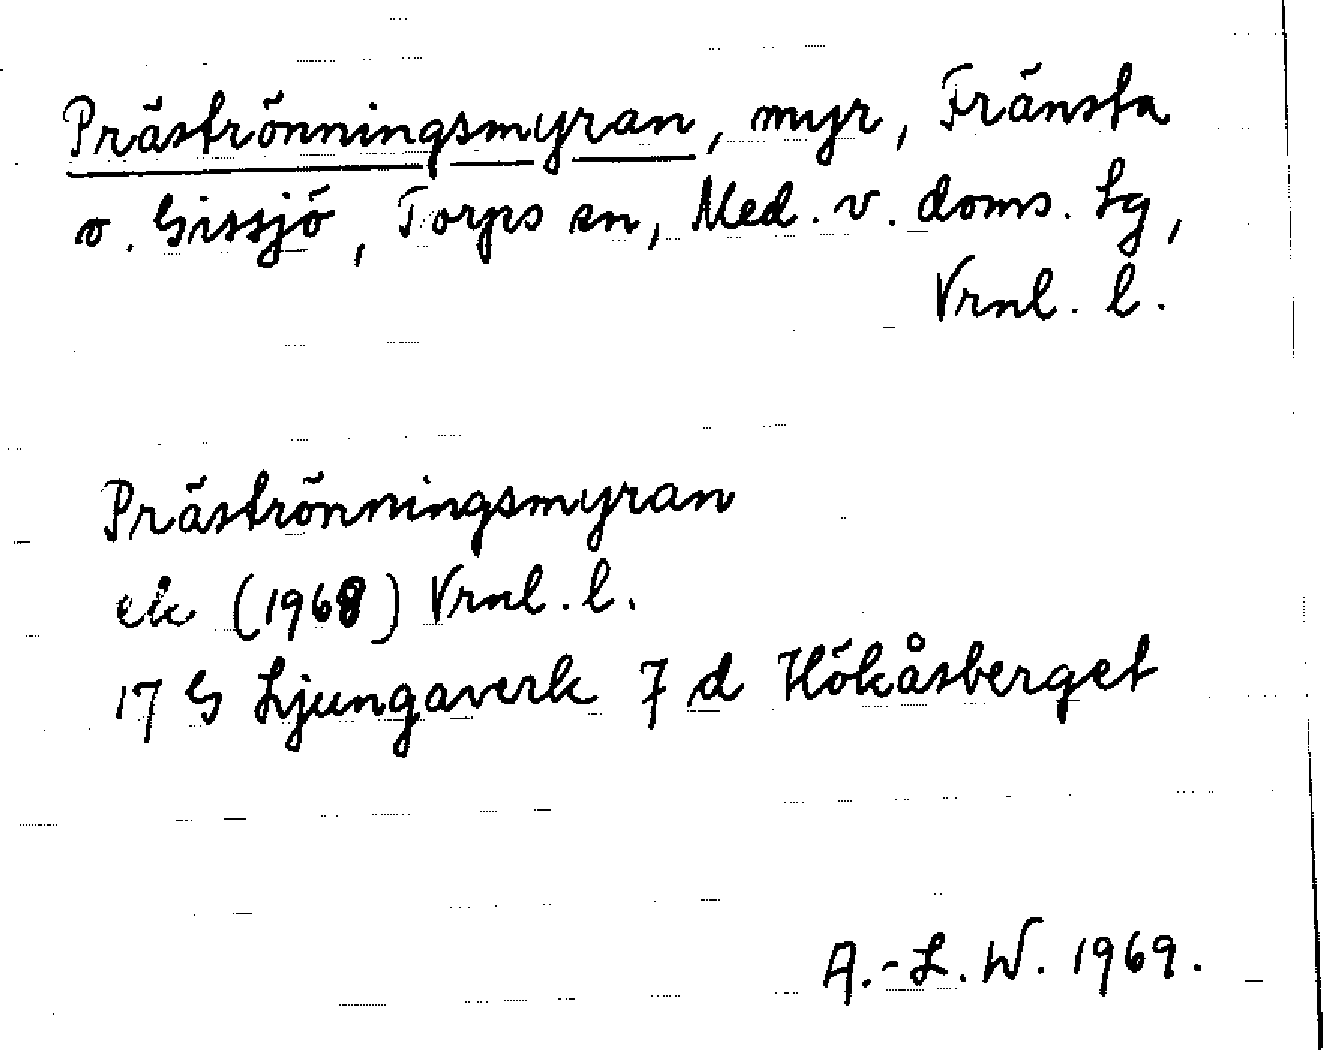 Präströnningsmyran, myr, Fränsta
o. Gissjö, Torps sn, Med. v. doms. lg,
Vrnl. l.
Präströnningsmyran
ek (1968) Vrnl. l.
17 G Ljungaverk 7 d Hökåsberget
A.-L. W. 1969.